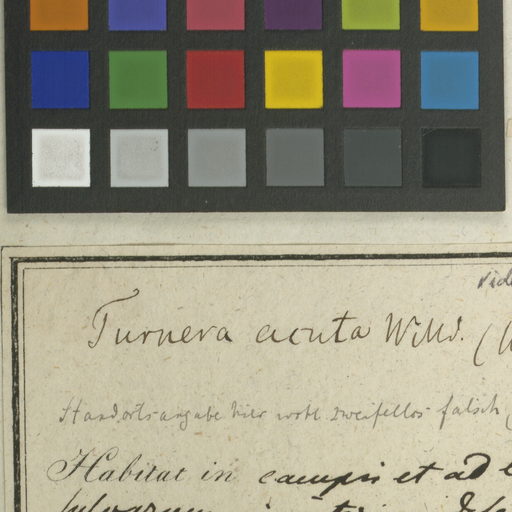 Vide
Turnera acuta Willd. (
Standortsangabe hier wohl zweifellos falsch
Habitat in campis et ad